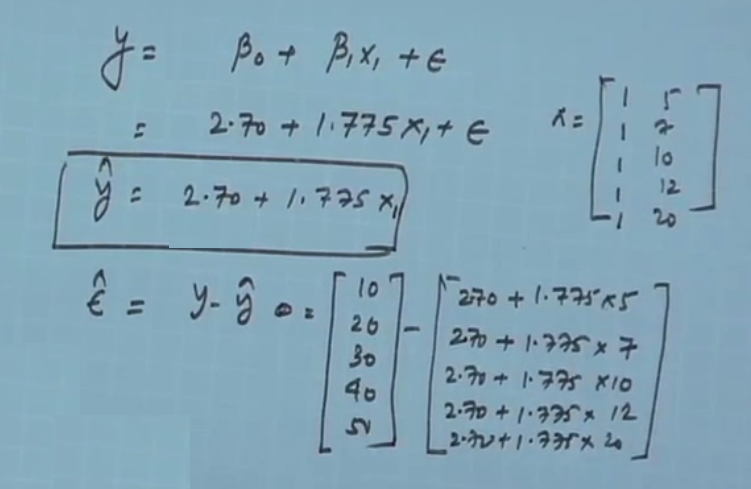 y = β₀ + β₁x₁ + ϵ
= 2.70 + 1.775 x₁ + ϵ
x = [ 1 5
1 7
1 10
1 12
1 20 ]
ŷ = 2.70 + 1.775 x₁
ϵ̂ = y - ŷ = [ 10
20
30
40
50 ] - [ 2.70 + 1.775 x 5
2.70 + 1.775 x 7
2.70 + 1.775 x 10
2.70 + 1.775 x 12
2.70 + 1.775 x 20 ]